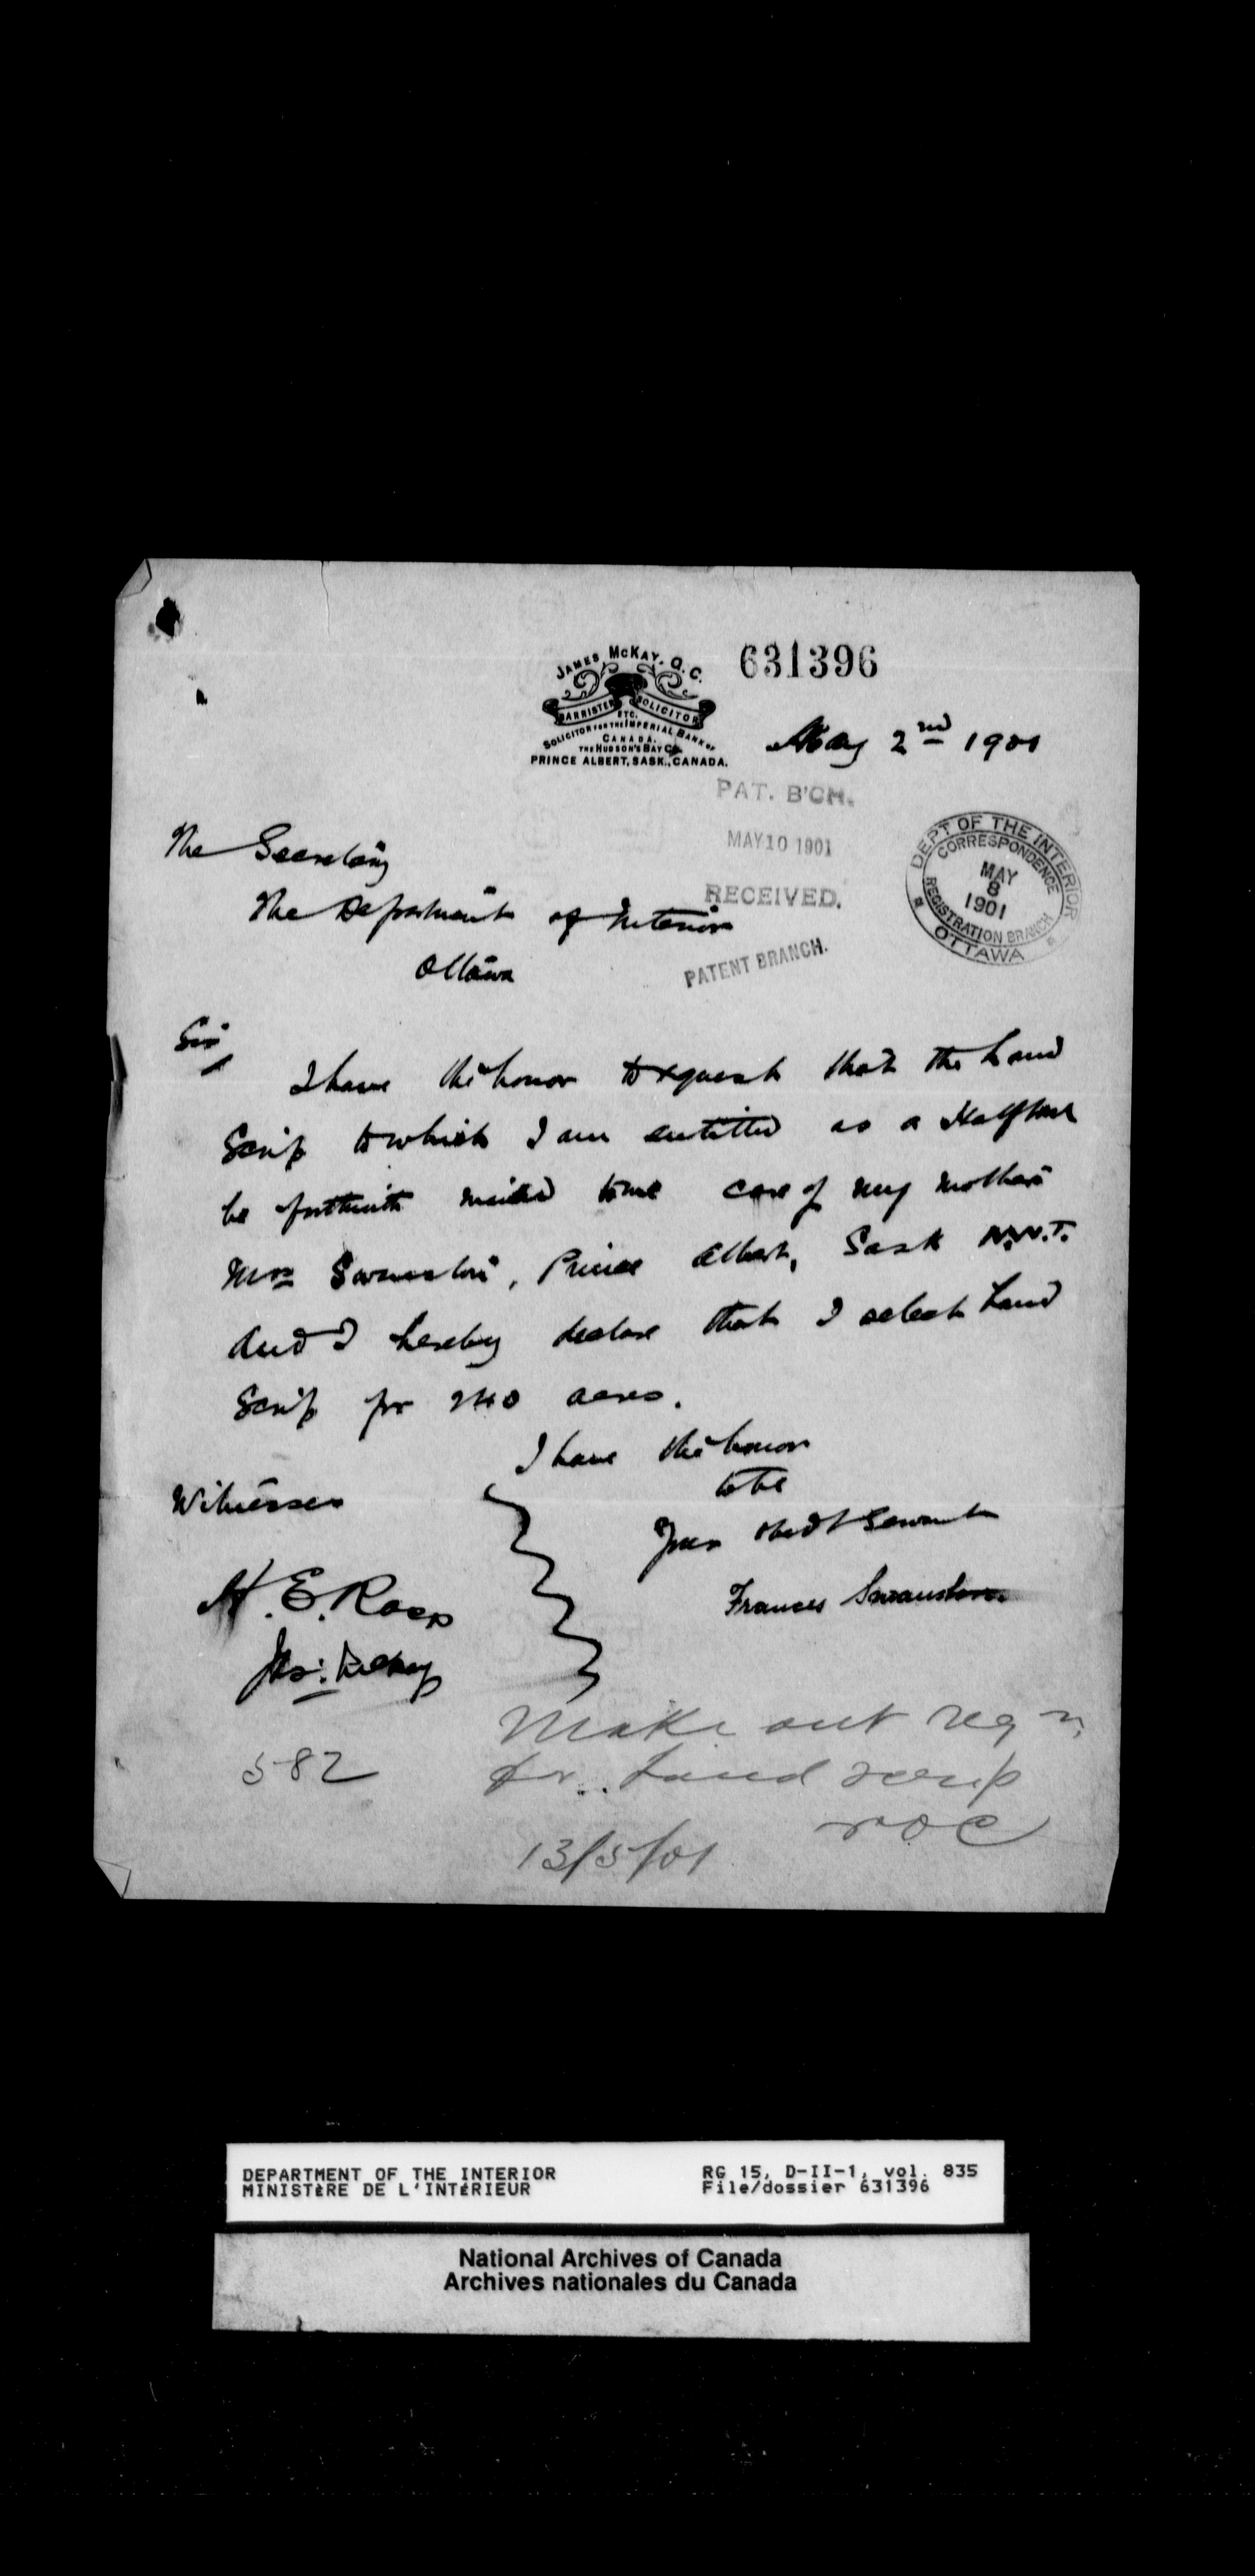 JAMES McKAY. Q. C.
BARRISTER SOLICITOR
ETC.
SOLICITOR FOR THE IMPERIAL BANK OF
CANADA.
THE HUDSON'S BAY Co.
PRINCE ALBERT, SASK., CANADA.
631396
May 2nd 1901
PAT. B'CH.
MAY 10 1901
RECEIVED.
PATENT BRANCH.
DEPT OF THE INTERIOR
CORRESPONDENCE
MAY
8
1901
REGISTRATION BRANCH
OTTAWA
The Secretary
The Department of Interior
Ottawa
Sir
I have the honor to request that the Land
Scrip to which I am entitled as a Halfbreed
be forthwith mailed to me care of my mother
Mrs Swanston, Prince Albert, Sask N.W.T.
And I hereby declare that I select Land
Scrip for 240 acres.
I have the honor
to be
Your obedt Servant
Frances Swanston.
Witnesses
H. E. Ross
Jas: McKay
582
Make out reqn
for Land scrip
13/5/01
DEPARTMENT OF THE INTERIOR
MINISTèRE DE L'INTéRIEUR
RG 15, D-II-1, vol. 835
File/dossier 631396
National Archives of Canada
Archives nationales du Canada